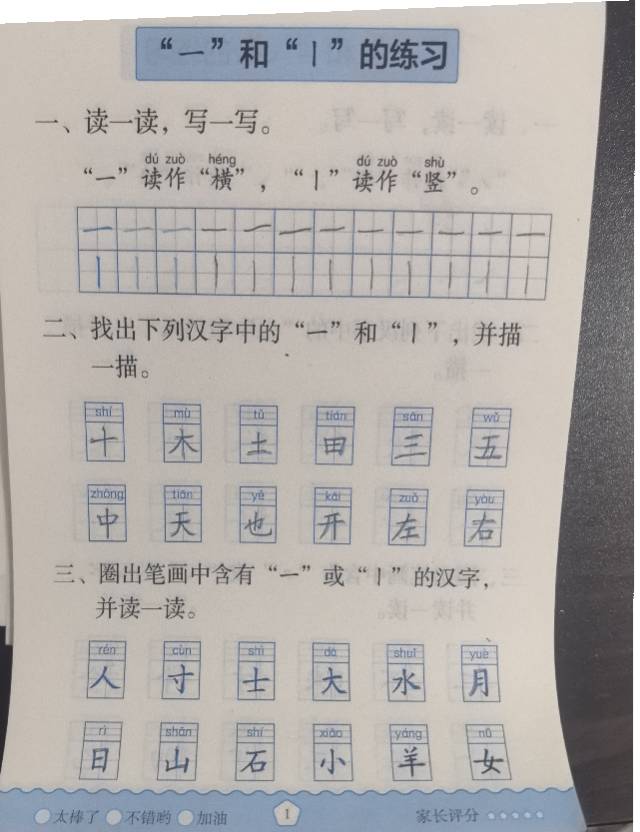 “一”和“丨”的练习
一、读一读，写一写。
dú zuò héng dú zuò shù
“一”读作“横”，“丨”读作“竖”。
一 一 一 一 一 一 一 一 一 一 一 一
丨 丨 丨 丨 丨 丨 丨 丨 丨 丨 丨 丨
二、找出下列汉字中的“一”和“丨”，并描
一描。
shí mù tǔ tián sān wǔ
十 木 土 田 三 五
zhōng tiān yě kāi zuǒ yòu
中 天 也 开 左 右
三、圈出笔画中含有“一”或“丨”的汉字，
并读一读。
rén cùn shì dà shuǐ yuè
人 寸 士 大 水 月
rì shān shí xiǎo yáng nǚ
日 山 石 小 羊 女
太棒了 不错哟 加油 1 家长评分